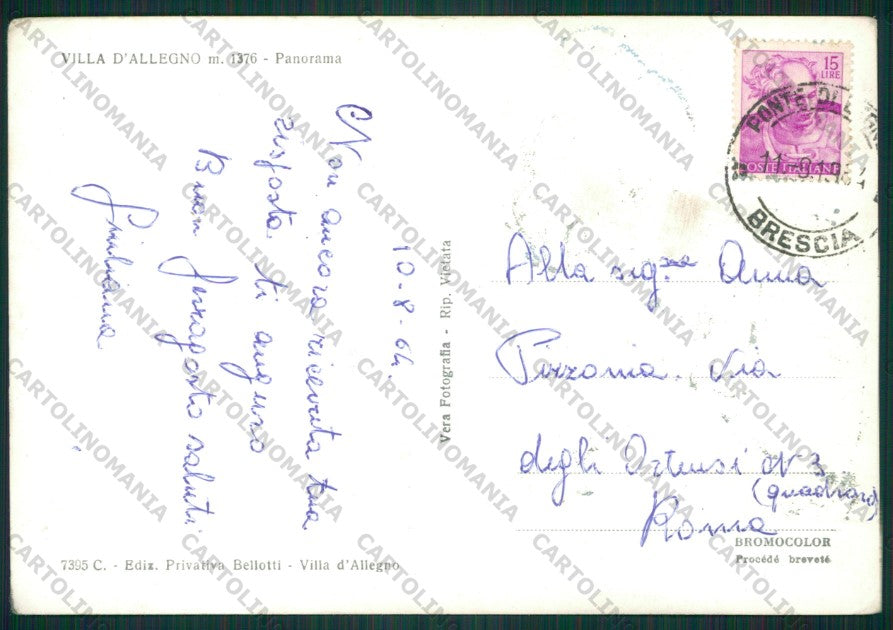 VILLA D'ALLEGNO m. 1376 - Panorama
10-8-64.
Non ancora ricevuta tua
risposta. ti auguro
Buon Ferragosto saluti
Giuliana
7395 C. - Ediz. Privativa Bellotti - Villa d'Allegno
Vera Fotografia - Rip. Vietata
15
LIRE
POSTE ITALIANE
PONTE DI LEGNO
BRESCIA
Alla sig.na Anna
Pizzonia. Via
degli Ortensi N° 3
(quadraro)
Roma
BROMOCOLOR
Procédé breveté
CARTOLINOMANIA